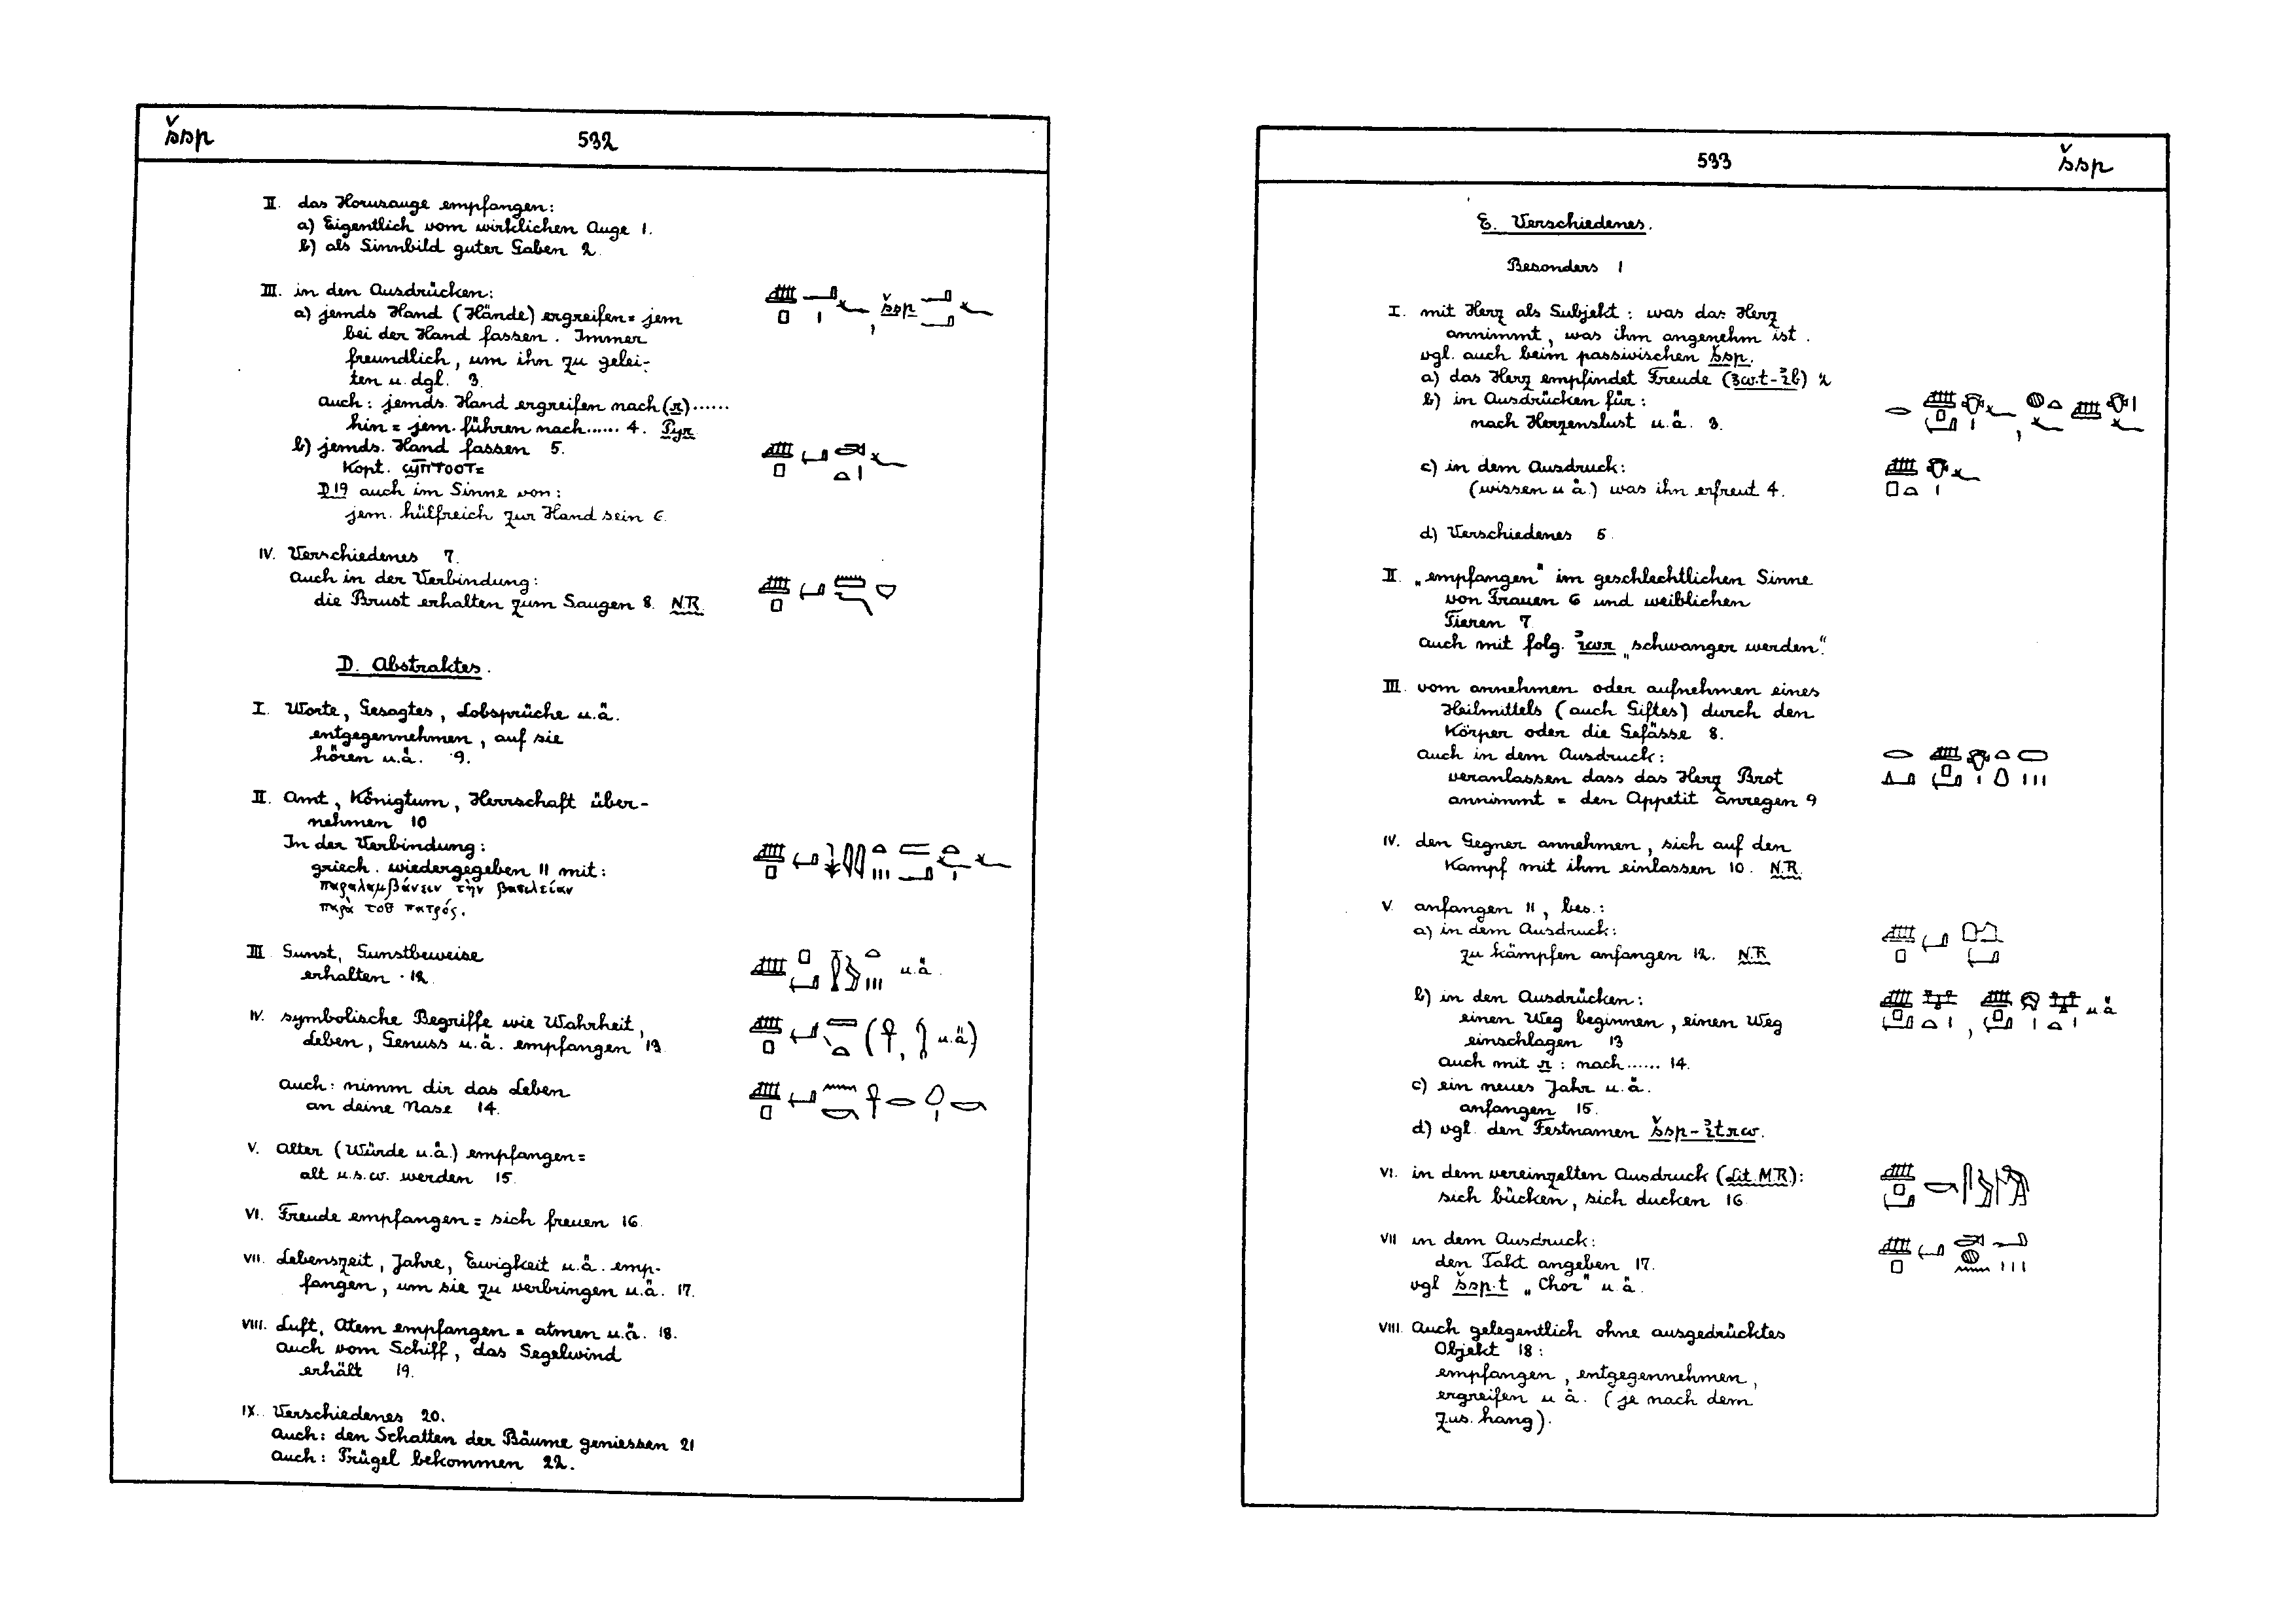 šsp
532
II. das Horusauge empfangen:
a) Eigentlich vom wirklichen Auge 1.
b) als Sinnbild guter Gaben 2.
III. in den Ausdrücken:
a) jemds Hand (Hände) ergreifen = jem
bei der Hand fassen. Immer
freundlich, um ihn zu gelei-
ten u. dgl. 3.
, šsp
auch: jemds. Hand ergreifen nach (r) ......
hin = jem. führen nach ...... 4. Pyr.
b) jemds. Hand fassen 5.
Kopt. ϣⲡⲧⲟⲟⲧ=
D19 auch im Sinne von:
jem. hülfreich zur Hand sein 6.
IV. Verschiedenes 7.
Auch in der Verbindung:
die Brust erhalten zum Saugen 8. N.R.
D. Abstraktes.
I. Worte, Gesagtes, Lobsprüche u.ä.
entgegennehmen, auf sie
hören u.ä. 9.
II. Amt, Königtum, Herrschaft über-
nehmen 10
In der Verbindung:
griech. wiedergegeben 11 mit:
παραλαμβάνειν τὴν βασιλείαν
παρὰ τοῦ πατρός.
III. Gunst, Gunstbeweise
erhalten 12.
u.ä.
IV. symbolische Begriffe wie Wahrheit,
Leben, Genuss u.ä. empfangen 13.
( , u.ä.)
Auch: nimm dir das Leben
an deine Nase 14.
V. Alter (Würde u.ä.) empfangen =
alt u.s.w. werden 15.
VI. Freude empfangen = sich freuen 16.
VII. Lebenszeit, Jahre, Ewigkeit u.ä. emp-
fangen, um sie zu verbringen u.ä. 17.
VIII. Luft, Atem empfangen = atmen u.ä. 18.
Auch vom Schiff, das Segelwind
erhält 19.
IX. Verschiedenes 20.
Auch: den Schatten der Bäume geniessen 21
Auch: Prügel bekommen 22.
533
šsp
E. Verschiedenes.
Besonders 1
I. mit Herz als Subjekt: was das Herz
annimmt, was ihm angenehm ist.
vgl. auch beim passivischen šsp.
a) das Herz empfindet Freude (ꜣw.t-ꞽb) 2
b) in Ausdrücken für:
nach Herzenslust u.ä. 3.
c) in dem Ausdruck:
(wissen u.ä.) was ihn erfreut 4.
d) Verschiedenes 5.
II. „empfangen" im geschlechtlichen Sinne
von Frauen 6 und weiblichen
Tieren 7.
Auch mit folg. ꞽwr „schwanger werden".
III. vom annehmen oder aufnehmen eines
Heilmittels (auch Giftes) durch den
Körper oder die Gefässe 8.
Auch in dem Ausdruck:
veranlassen dass das Herz Brot
annimmt = den Appetit anregen 9
IV. den Gegner annehmen, sich auf den
Kampf mit ihm einlassen 10. N.R.
V. anfangen 11, bes.:
a) in dem Ausdruck:
zu kämpfen anfangen 12. N.R.
b) in den Ausdrücken:
einen Weg beginnen, einen Weg
einschlagen 13
u.ä
Auch mit r: nach ...... 14.
c) ein neues Jahr u.ä.
anfangen 15.
d) vgl. den Festnamen šsp-ꞽtrw.
VI. in dem vereinzelten Ausdruck (Lit. M.R.):
sich bücken, sich ducken 16.
VII in dem Ausdruck:
den Takt angeben 17.
vgl šsp.t „Chor" u.ä.
VIII. Auch gelegentlich ohne ausgedrücktes
Objekt 18:
empfangen, entgegennehmen,
ergreifen u.ä. (je nach dem
Zus.hang).